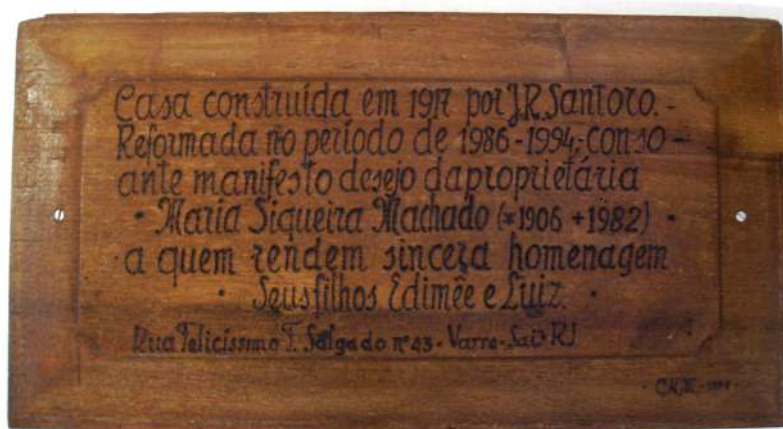 Casa construída em 1917 por J.R.Santoro.-
Reformada no período de 1986-1994, conso-
ante manifesto desejo da proprietária
• Maria Siqueira Machado (*1906 +1982) •
a quem rendem sincera homenagem
• Seus filhos Edimêe e Luiz. •
Rua Felicíssimo F. Salgado nº 43 - Varre-Sai-RJ